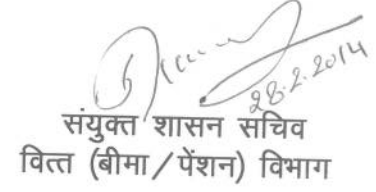 28.2.2014
संयुक्त शासन सचिव
वित्त (बीमा/पेंशन) विभाग